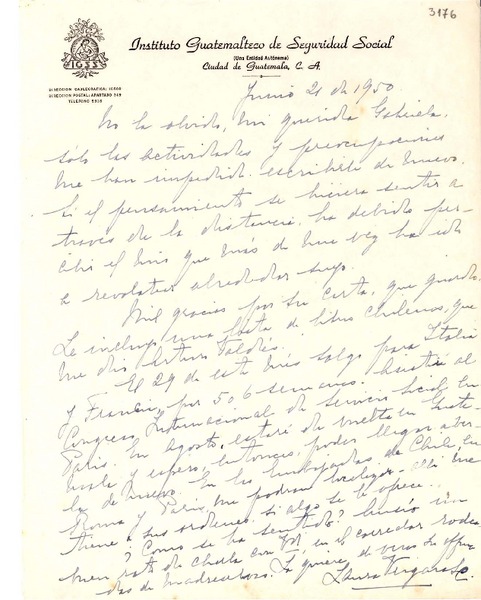 3176
IGSS
Instituto Guatemalteco de Seguridad Social
(Una Entidad Autónoma)
Ciudad de Guatemala, C. A.
DIRECCION CABLEGRAFICA: IGSOS
DIRECCION POSTAL: APARTADO 349
TELEFONO
Junio 21 de 1950.
No la olvido, mi querida Gabriela,
sólo las actividades y preocupaciones
me han impedido escribirle de nuevo.
Si el pensamiento se hiciera sentir a
través de la distancia, ha debido per-
cibir el mío que más de una vez ha ido
a revolotear alrededor suyo.
Mil gracias por su carta, que guardo.
Le incluyo una lista de libros chilenos, que
me dio Arturo Valdés.
El 29 de este mes salgo para Italia
y Francia, por 5 o 6 semanas. Asistiré al
Congreso Internacional de Servicio Social en
París. En agosto, estaré de vuelta en Guate-
mala y espero, entonces, poder llegar a ver-
la de nuevo. En las Embajadas de Chile, en
Roma y París, me podrán localizar. Allí me
tiene a sus órdenes, si algo se le ofrece.
¿Cómo se ha sentido? Ansío un
buen rato de charla con Ud, en el corredor rodea
do de madreselvas. La quiere de veras su affma
Laura Vergara S.